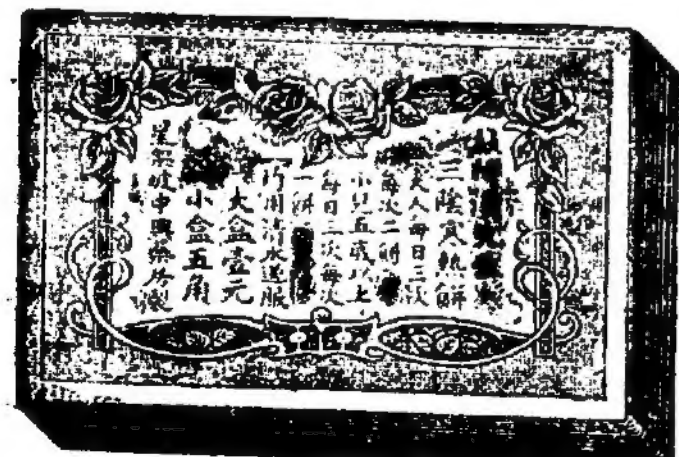 三陰實熱餅
大人每日三次
每次二餅
小兒五歲以上
每日三次每次
一餅
巧用清水送服
大盆壹元
小盆五角
星架坡中興藥房製